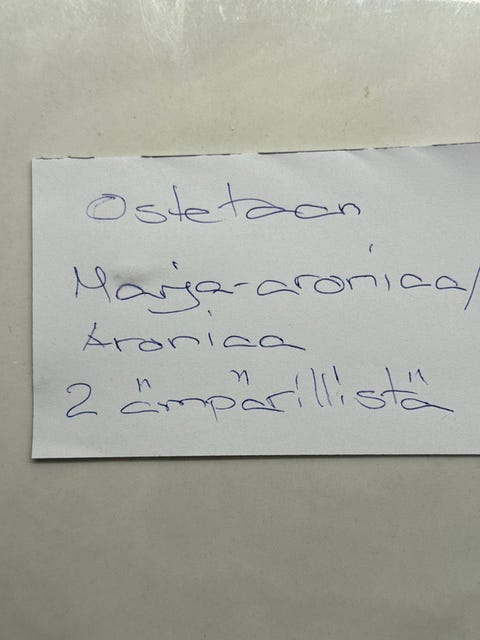 Ostetaan
Marja-aroniaa/
Aroniaa
2 ämpärillistä